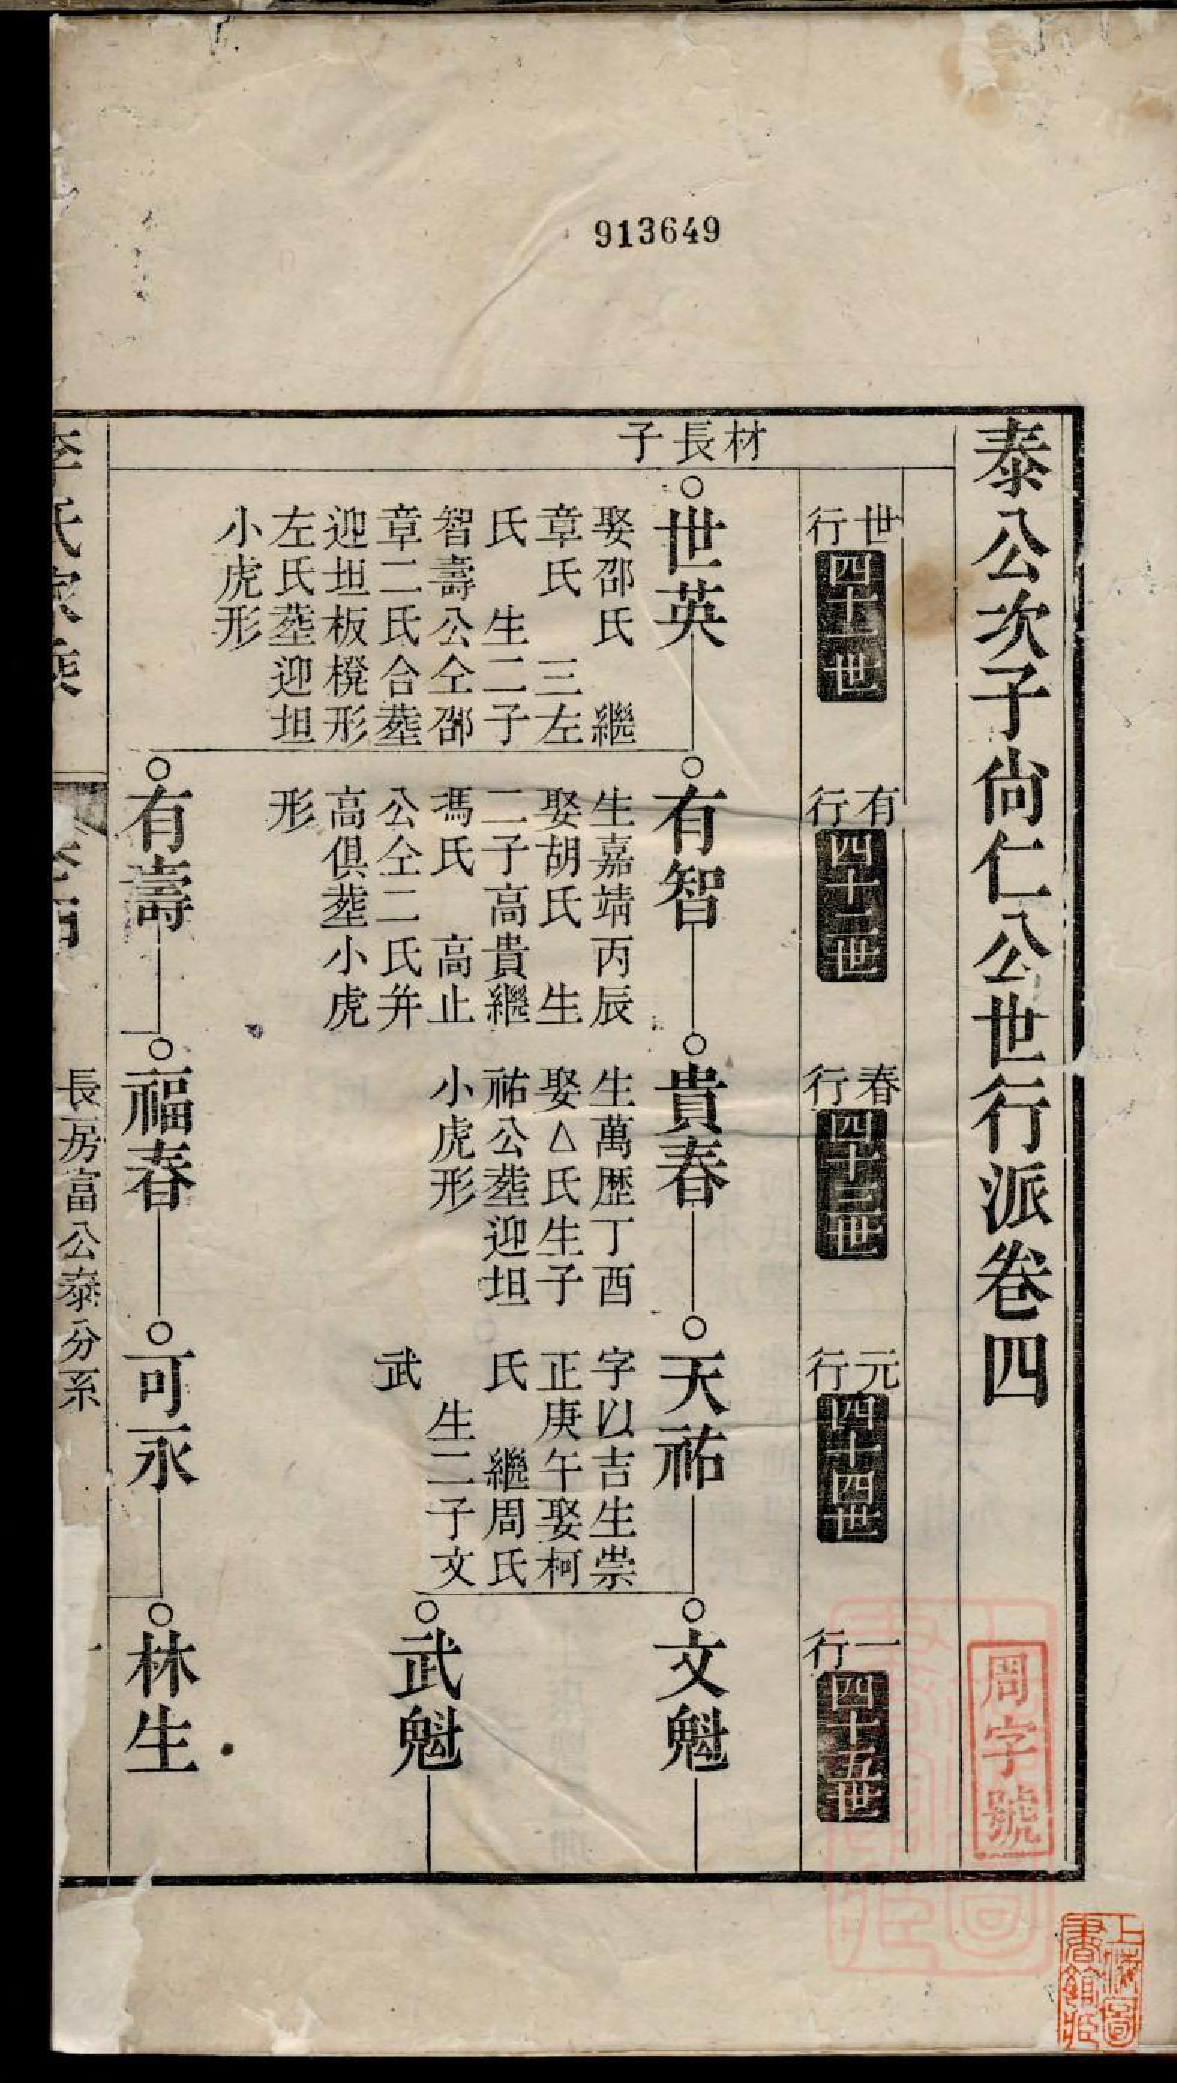 913649
泰公次子尙仁公世行派卷四
周字號
世行
四十一世
有行
四十二世
春行
四十三世
元行
四十四世
一行
四十五世
材長子
世英
娶邵氏 繼
章氏 三左
氏 生二子
智壽公仝邵
章二氏合塟
迎坦板櫈形
左氏塟迎坦
小虎形
有智
生嘉靖丙辰
娶胡氏 生
二子高貴繼
馮氏 高止
公仝二氏并
高俱塟小虎
形
貴春
生萬歷丁酉
娶△氏生子
祐公塟迎坦
小虎形
天祐
字以吉生崇
正庚午娶柯
氏 繼周氏
生二子文
武
文魁
武魁
有壽
福春
可永
林生
李氏家乘
卷四
長房富公泰分系
一
上海圖書館藏